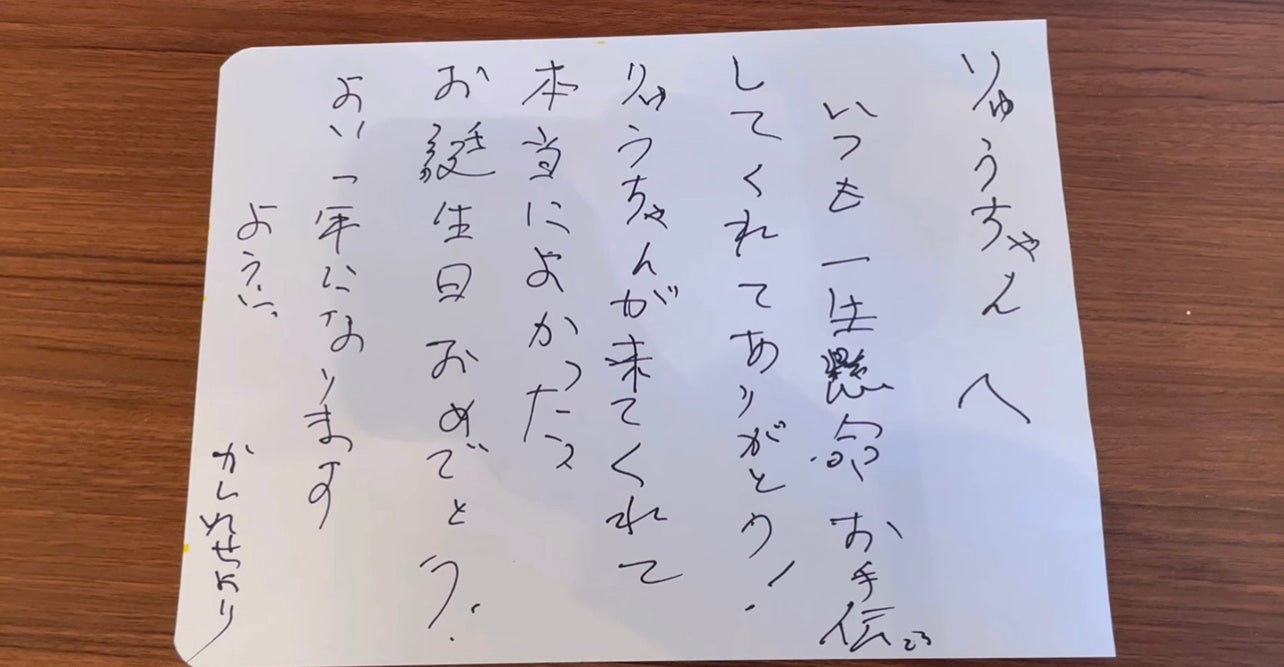 りゅうちゃんへ
いつも一生懸命お手伝い
してくれてありがとう!
りゅうちゃんが来てくれて
本当によかったっ
お誕生日おめでとう.
よい一年になります
ように、
より